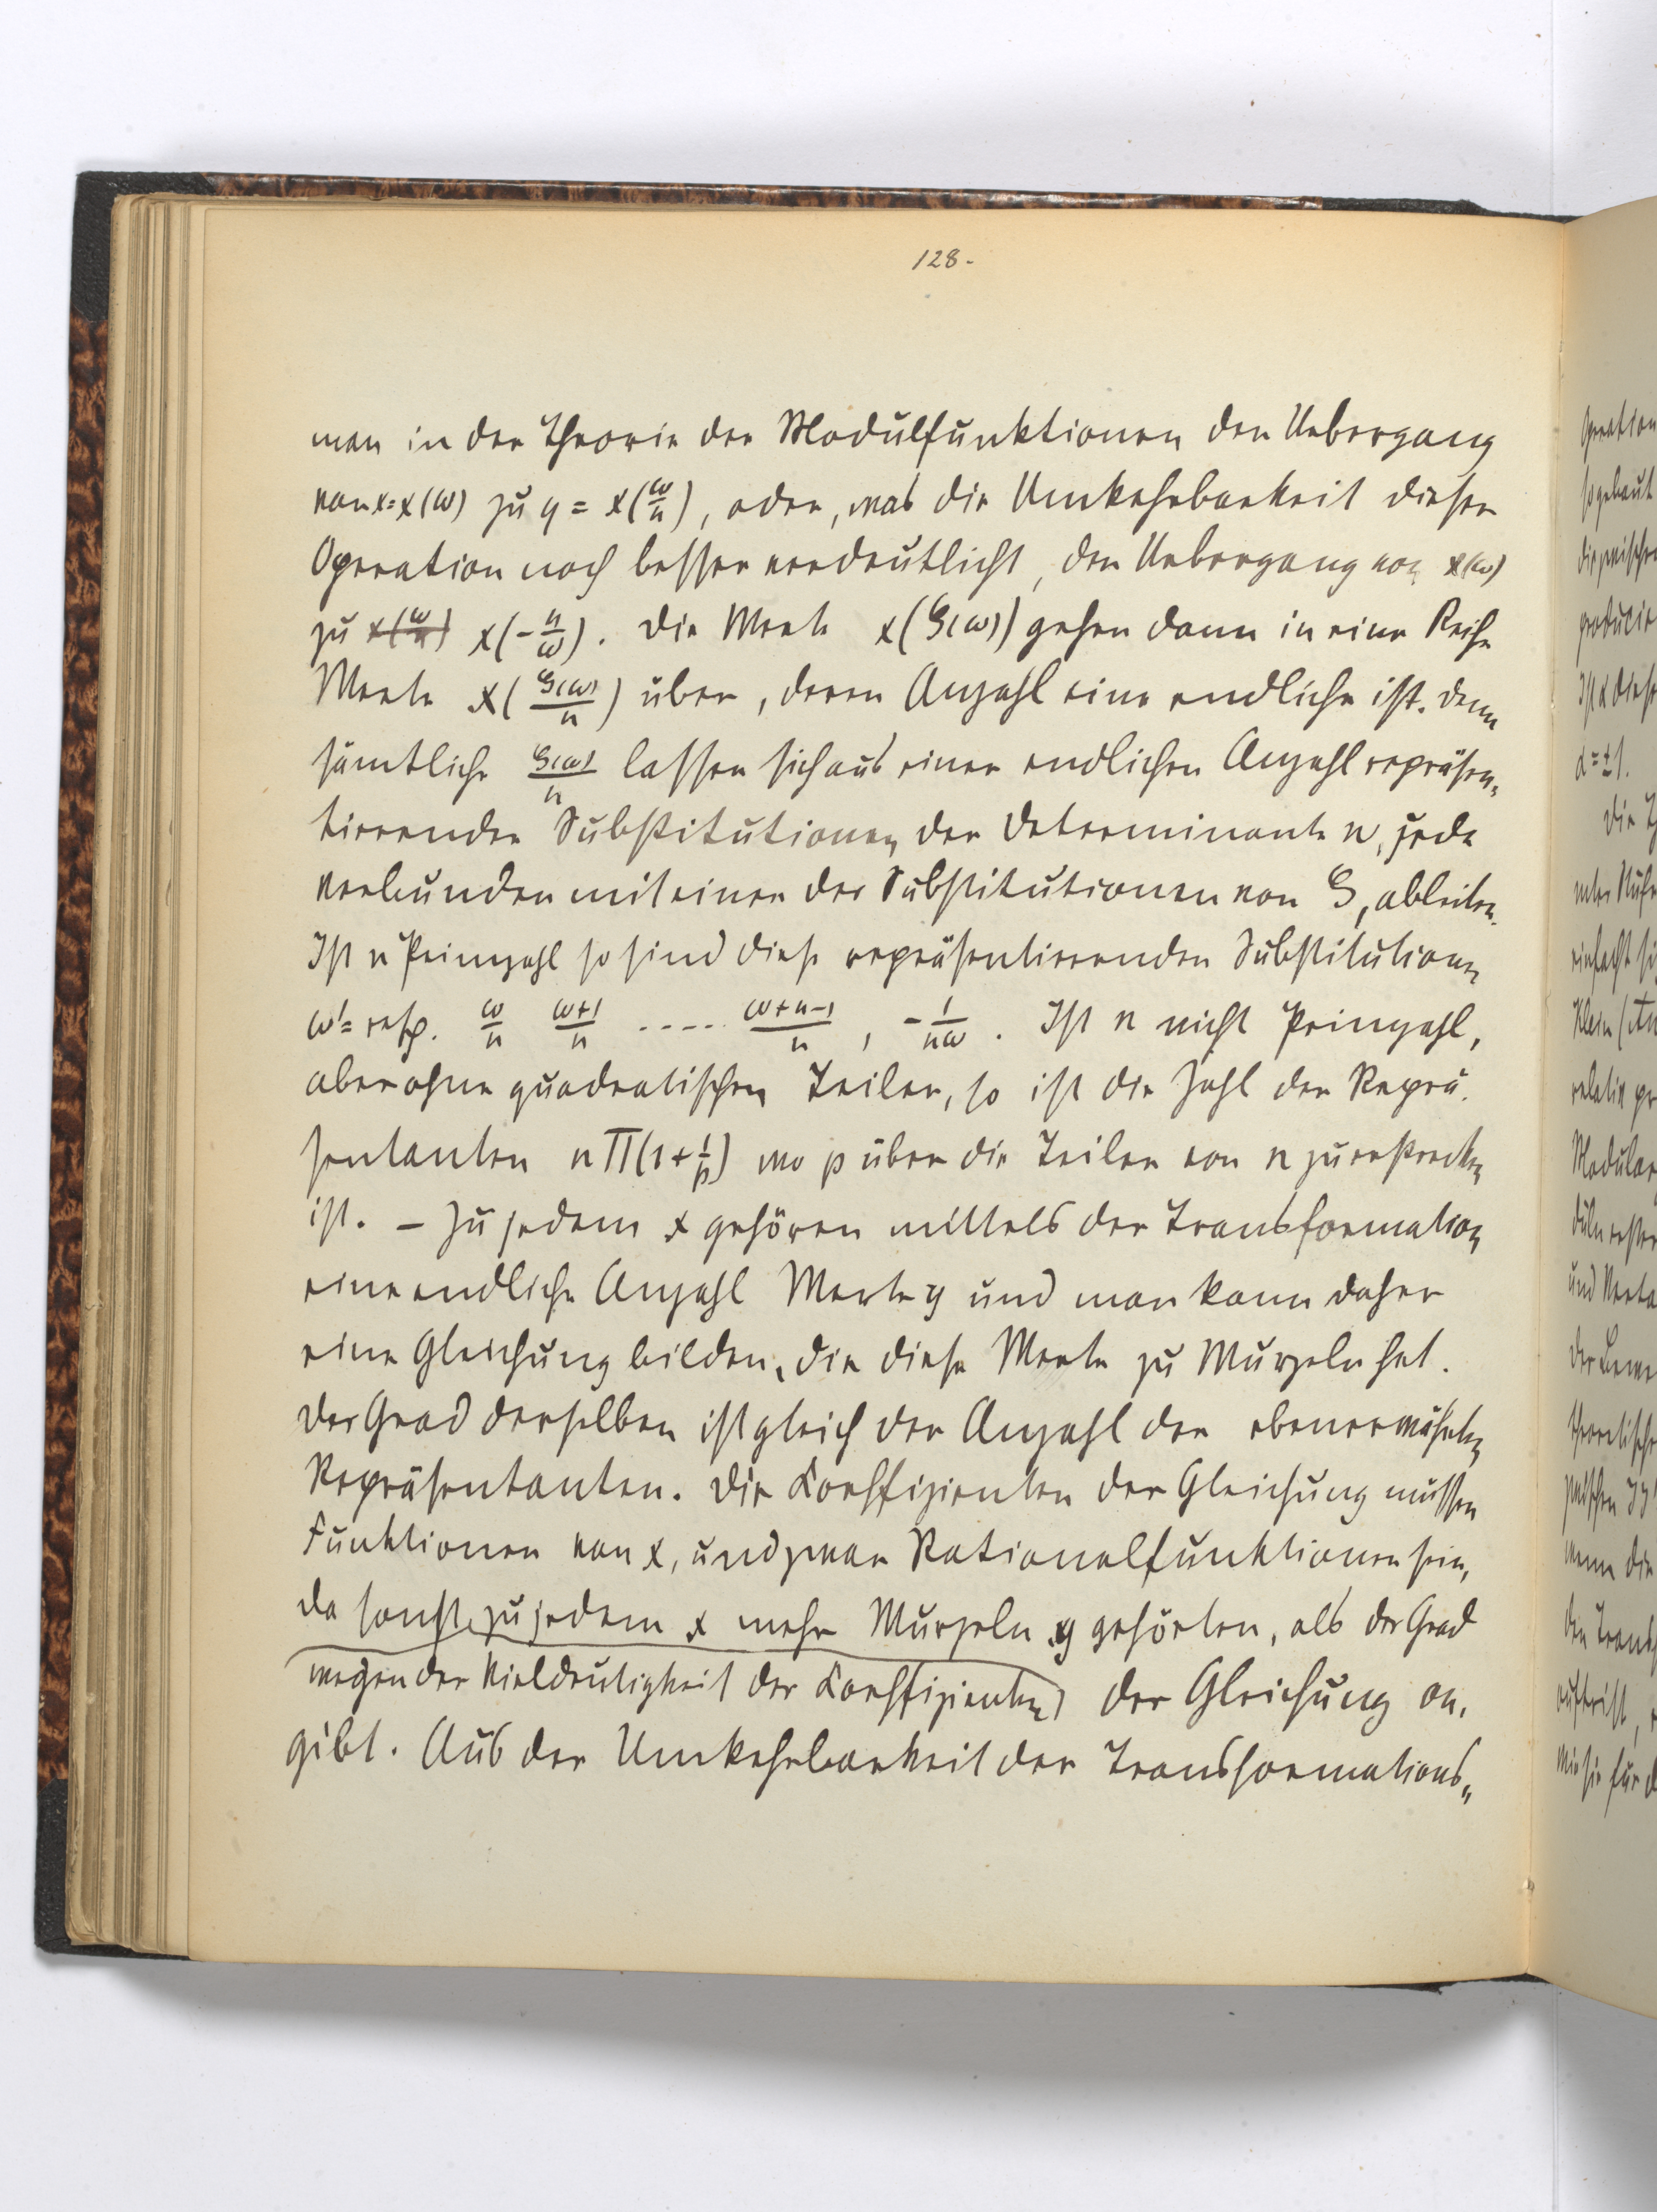 128.
man in der Theorie der Modulfunktionen den Uebergang
von x=x(ω) zu y = x(ω/n), oder, was die Umkehrbarkeit dieser
Operation noch besser verdeutlicht, den Uebergang von x(ω)
zu x(ω/n) x(-n/ω). Die Werte x(S(ω)) gehen dann in eine Reihe
Werte x(S(ω)/n) über, deren Anzahl eine endliche ist. Denn
sämtliche S(ω)/n lassen sich aus einer endlichen Anzahl repräsen„
tierender Substitutionen der Determinante n, jede
verbunden mit einer der Substitutionen von S, ableiten.
Ist n Primzahl so sind diese repräsentierenden Substitutionen
ω'= resp. ω/n (ω+1)/n ..... (ω+n-1)/n, -1/nω. Ist n nicht Primzahl,
aber ohne quadratischen Teiler, so ist die Zahl der Reprä.
sentanten nΠ(1+1/p) wo p über die Teiler von n zu erstrecken
ist. – Zu jedem x gehören mittels der Transformation
eine endliche Anzahl Werte y und man kann daher
eine Gleichung bilden, die diese Werte zu Wurzeln hat.
Der Grad derselben ist gleich der Anzahl der ebenerwähnten
Repräsentanten. Die Koeffizienten der Gleichung müssen
Funktionen von x, und zwar Rationalfunktionen sein,
da sonst zu jedem x mehr Wurzeln y gehörten, als der Grad
wegen der Vieldeutigkeit der Koeffizienten der Gleichung an.
gibt. Aus der Umkehrbarkeit der Transformations„